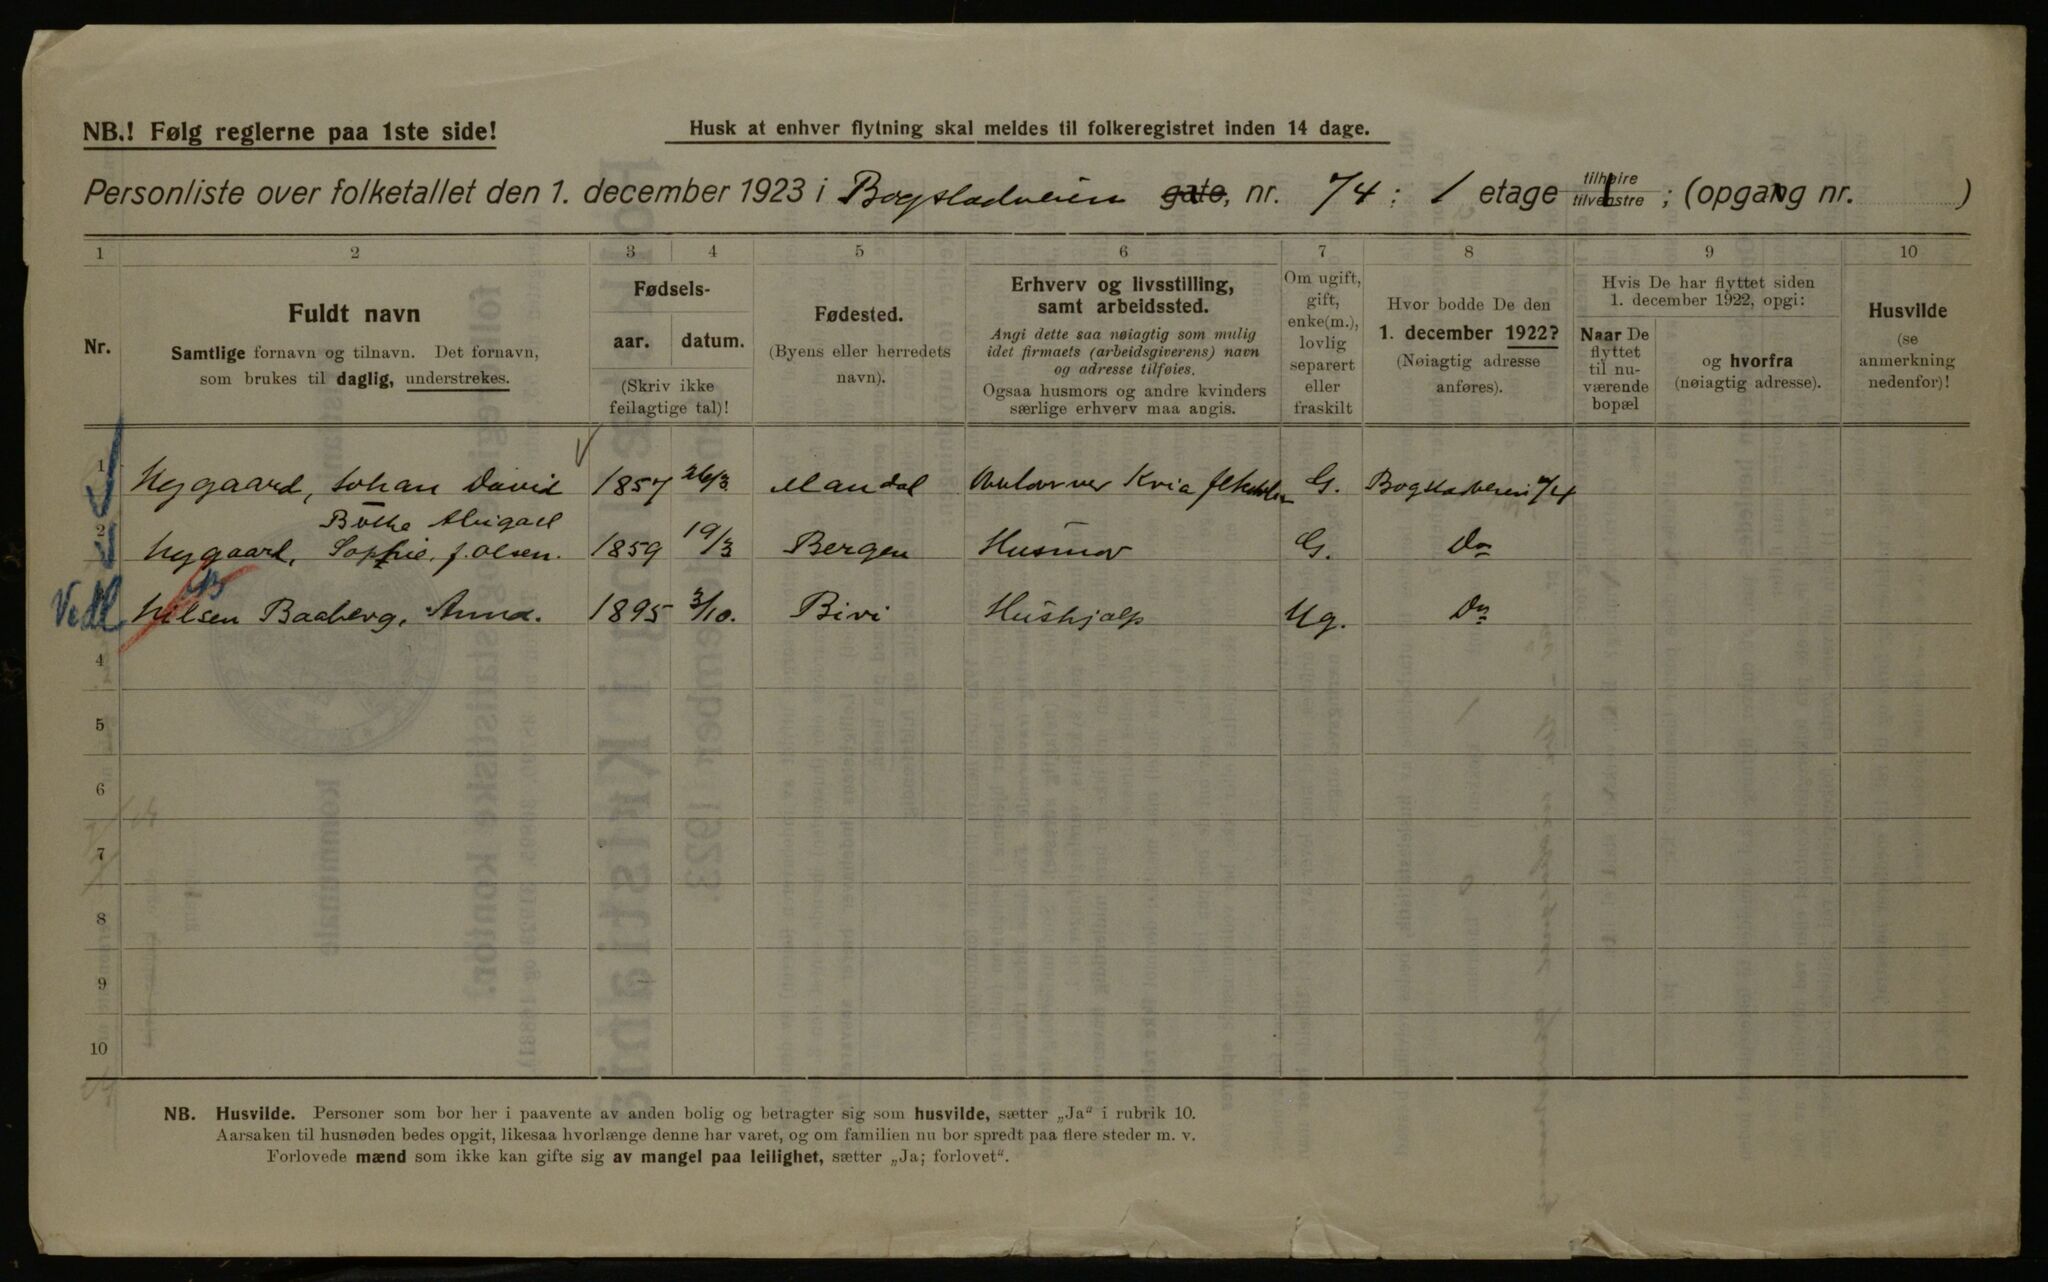 NB.! Følg reglerne paa 1ste side!
Husk at enhver flytning skal meldes til folkeregistret inden 14 dage.
Personliste over folketallet den 1. december 1923 i Bogstadveien gate, nr. 74 : 1 etage tilhøire tilvenstre ; (opgang nr. )
1 2 3 4 5 6 7 8 9 10
Nr.
Fuldt navn
Samtlige fornavn og tilnavn. Det fornavn,
som brukes til daglig, understrekes.
Fødsels-
aar. datum.
(Skriv ikke
feilagtige tal)!
Fødested.
(Byens eller herredets
navn).
Erhverv og livsstilling,
samt arbeidssted.
Angi dette saa nøiagtig som mulig
idet firmaets (arbeidsgiverens) navn
og adresse tilføies.
Ogsaa husmors og andre kvinders
særlige erhverv maa angis.
Om ugift,
gift,
enke(m.),
lovlig
separert
eller
fraskilt
Hvor bodde De den
1. december 1922?
(Nøiagtig adresse
anføres).
Hvis De har flyttet siden
1. december 1922, opgi:
Naar De
flyttet
til nu-
værende
bopæl
og hvorfra
(nøiagtig adresse).
Husvilde
(se
anmerkning
nedenfor)!
1 Nygaard, Johan David 1857 26/3 Mandal G. Bogstadveien 74
Abigael
2 Nygaard, Sophie, f. Olsen. 1859 19/3 Bergen Husmor G. Do
Vedl Nilsen Baaberg, Anna. 1895 3/10. Bivi Hushjælp Ug. Do
4
5
6
7
8
9
10
NB. Husvilde. Personer som bor her i paavente av anden bolig og betragter sig som husvilde, sætter „Ja“ i rubrik 10.
Aarsaken til husnøden bedes opgit, likesaa hvorlænge denne har varet, og om familien nu bor spredt paa flere steder m. v.
Forlovede mænd som ikke kan gifte sig av mangel paa leilighet, sætter „Ja; forlovet“.